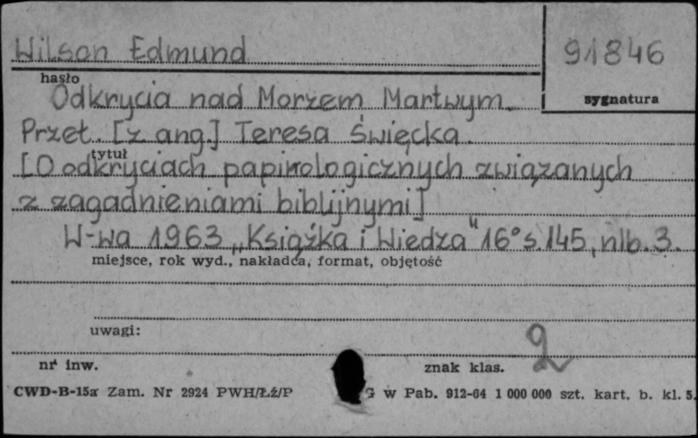 Wilson Edmund
91846
hasło
sygnatura
Odkrycia nad Morzem Martwym.
Przeł. [z ang.] Teresa Święcka.
tytuł
[O odkryciach papirologicznych związanych
z zagadnieniami biblijnymi]
W-wa 1963 „Książka i Wiedza" 16° s. 145, nlb. 3.
miejsce, rok wyd., nakładca, format, objętość
uwagi:
2
nr inw.
znak klas.
CWD-B-15a Zam. Nr 2924 PWH/Łź/P
G w Pab. 912-64 1 000 000 szt. kart. b. kl. 5.